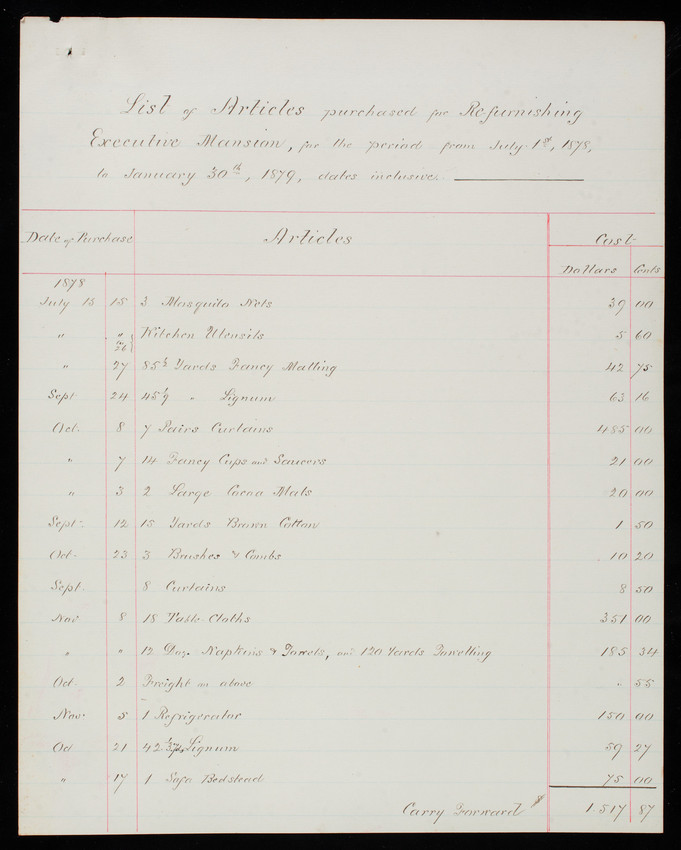 List of Articles purchased for Refurnishing
Executive Mansion, for the period from July 1st, 1878,
to January 30th, 1879, dates inclusive.
Date of Purchase Articles Cost
Dollars Cents
1878
July 15 15 3 Mosquito Nets 39 00
" " 26 Kitchen Utensils 5 60
" 27 85½ Yards Fancy Matting 42 75
Sept 24 45 1/9 " Lignum 63 16
Oct. 8 7 Pairs Curtains 485 00
" 7 14 Fancy Cups and Saucers 21 00
" 3 2 Large Cocoa Mats 20 00
Sept. 12 15 Yards Brown Cotton 1 50
Oct. 23 3 Brushes & Combs 10 20
Sept. 8 Curtains 8 50
Nov 8 18 Table Cloths 351 00
" " 12 Doz. Napkins & Towels, and 120 Yards Towelling 185 34
Oct 2 Freight on above " 55
Nov. 5 1 Refrigerator 150 00
Oct 21 42 Lignum 59 27
" 17 1 Sofa Bedstead 75 00
Carry Forward $ 1.517 87